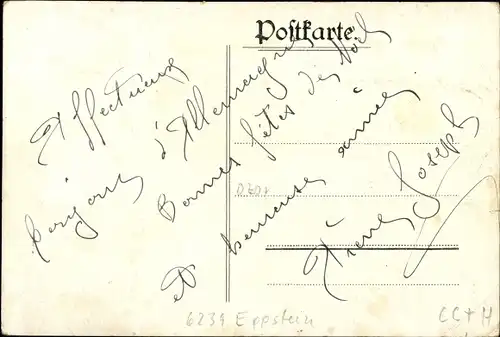 Postkarte.
Affectueux
bonjours d'Allemagne
Bonnes fêtes de Noël
et heureuse année
Joseph
6239 Eppstein
CC+H